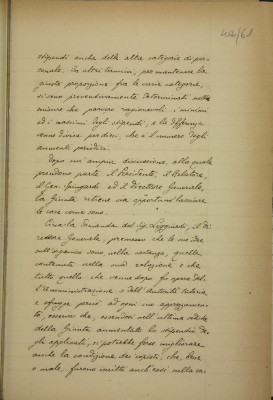 44/61
stipendi anche delle altre categorie di per-
sonale. In altri termini, per mantenere la
giusta proporzione fra le varie categorie,
si sono preventivamente determinati nelle
misure che parvero ragionevoli, i minimi
ed i massimi degli stipendi, e la differenza
venne divisa per dieci, che è il numero degli
aumenti periodici.
Dopo un'ampia discussione, alla quale
prendono parte il Presidente, il Relatore,
il Gen. Spingardi ed il Direttore Generale,
la Giunta ritiene sia opportuno lasciare
le cose come sono.
Circa la domanda del Sig. il Di-
rettore Generale, premesso che le sue idee
sull'organico sono nella sostanza, quelle
contenute nella sua relazione e che
tutto quello che venne dopo fu opera del-
l'Amministrazione o dell'Autorità tutoria,
e sfugge perciò ad ogni suo apprezzamen-
to, osserva che, essendosi nell'ultima seduta
della Giunta aumentato lo stipendio de-
gli applicati, si potrebbe forse migliorare
anche la condizione dei copisti, che, bene
o male, furono iscritti anch'essi nella ca-